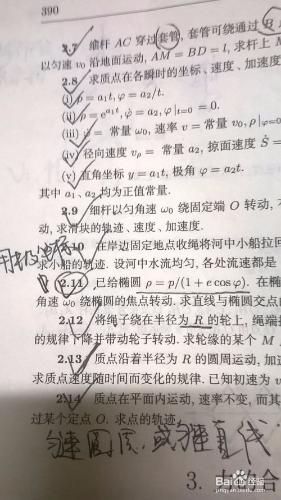 390
2.7 细杆 AC 穿过套管, 套管可绕通过 B
以匀速 v₀ 沿地面运动, AM = BD = l, 求杆上 M
2.8 求质点在各瞬时的坐标、速度、加速度
(i) ρ = a₁t, φ = a₂/t.
(ii) ρ = e^{a₁t}, φ̇ = a₂, φ|_{t=0} = 0.
(iii) φ̇ = 常量 ω₀, 速率 v = 常量 v₀, ρ|_{φ=0}
(iv) 径向速度 v_ρ = 常量 a₂, 掠面速度 Ṡ =
(v) 直角坐标 y = a₁t, 极角 φ = a₂t.
其中 a₁、a₂ 均为正值常量.
2.9 细杆以匀角速 ω₀ 绕固定端 O 转动,
动, 求滑块的轨迹、速度、加速度.
10 在岸边固定地点收绳将河中小船拉回
求小船的轨迹. 设河中水流均匀, 各处流速都是
2.11 已给椭圆 ρ = p/(1 + e cosφ). 在椭
角速 ω₀ 绕椭圆的焦点转动. 求直线与椭圆交点的
2.12 将绳子绕在半径为 R 的轮上, 绳端
的规律下降并带动轮子转动. 求轮缘的某个 M
2.13 质点沿着半径为 R 的圆周运动, 加速
求质点速度随时间而变化的规律. 已知初速为 v
2.14 质点在平面内运动, 速率不变, 而其
过某个定点 O. 求点的轨迹.
匀速圆周, 或匀速直线
3.
Baidu 经验
jingyan.baidu.com